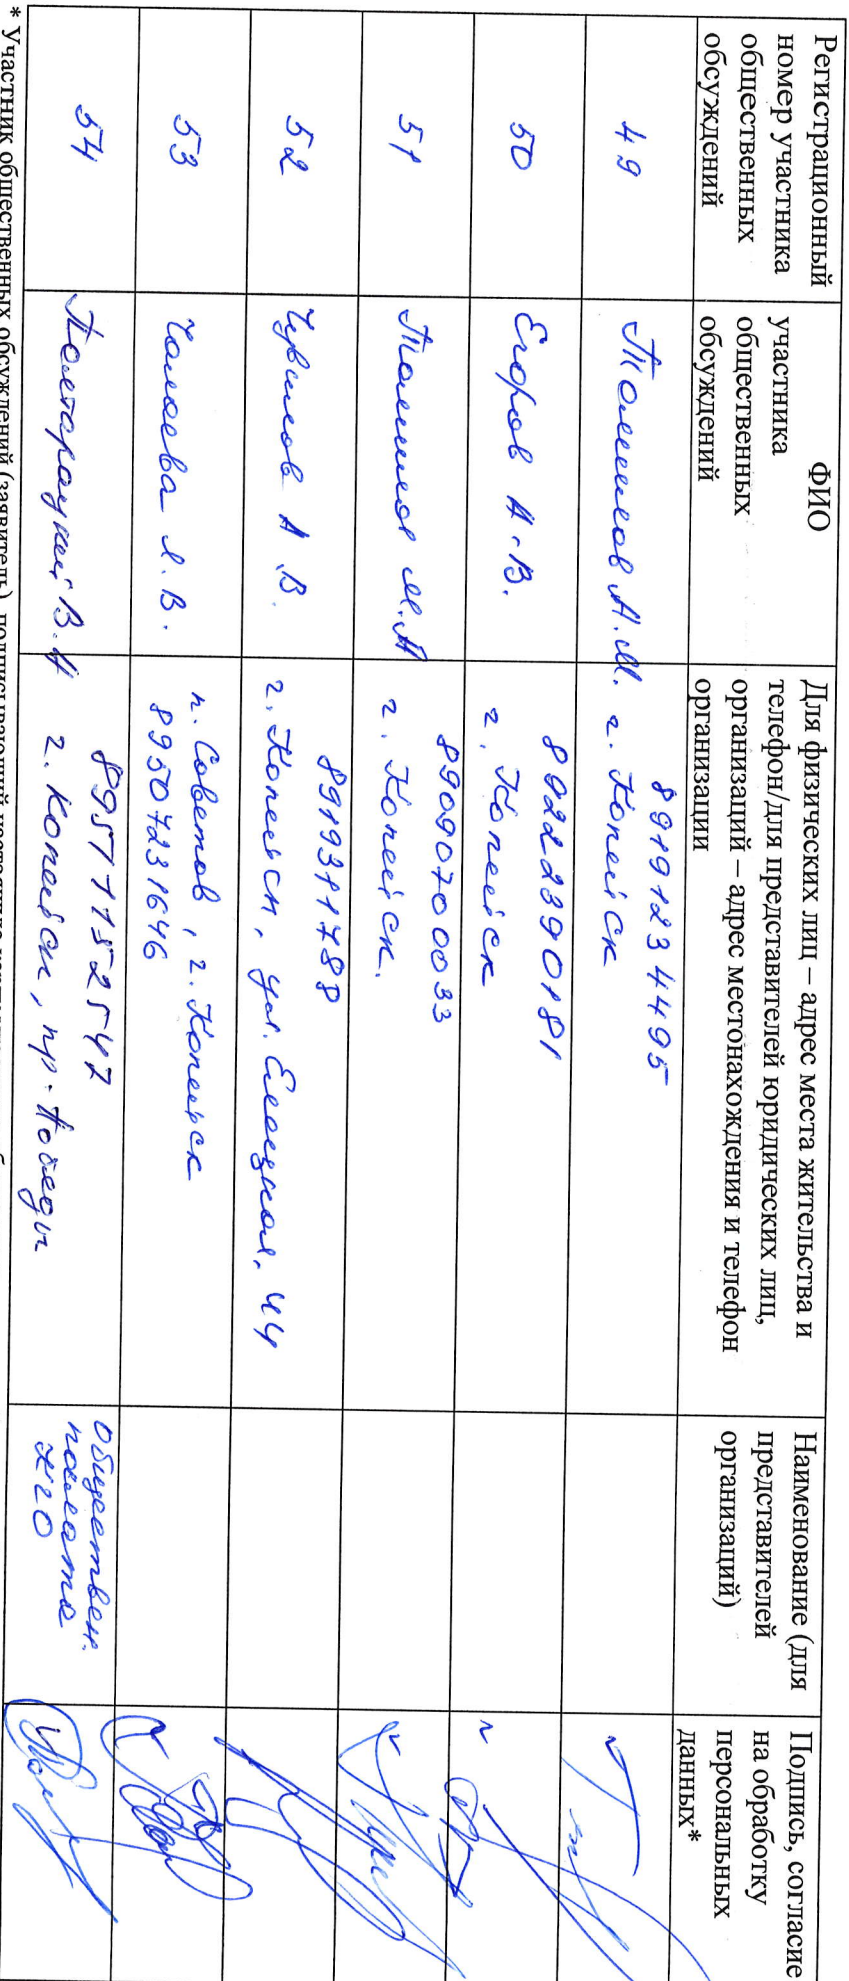 Регистрационный
номер участника
общественных
обсуждений
ФИО
участника
общественных
обсуждений
Для физических лиц – адрес места жительства и
телефон/для представителей юридических лиц,
организаций – адрес местонахождения и телефон
организации
Наименование (для
представителей
организаций)
Подпись, согласие
на обработку
персональных
данных*
49
А.М.
89191234495
г. Копейск
50
Егоров А.В.
89222390181
г. Копейск
51
М.А
89090700033
г. Копейск.
52
А.В.
8919311788
г. Копейск, ул. 44
53
Л.В.
п. Советов, г. Копейск
89507231646
54
Полторацкий В.А
89517152547
г. Копейск, пр. Победы
обществен.
палата
КГО
* Участник общественных обсуждений (заявитель),